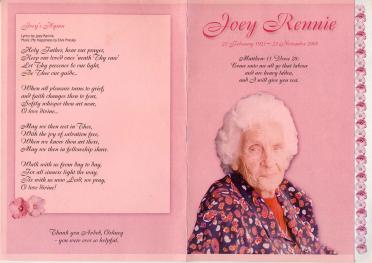 Joey's Hymn
Lyrics by Joey Rennie
Music: My Happiness by Elvis Presley
Holy Father, hear our prayer,
Keep our loved ones 'neath Thy care
Let Thy presence to our light,
Be Thou our guide..
When all pleasures turn to grief,
and faith changes then to fear,
Softly whisper thou art near,
O love divine...
May we then rest in Thee,
With the joy of salvation free,
When we know thou art there,
May we then in fellowship share.
Walk with us from day to day,
For all sinners light the way,
Be with us now Lord, we pray,
O love divine!
Thank you
- you were ever so helpful.
Joey Rennie
Matthew 11 Verse 28:
Come unto me all ye that labour
and are heavy laden,
and I will give you rest.